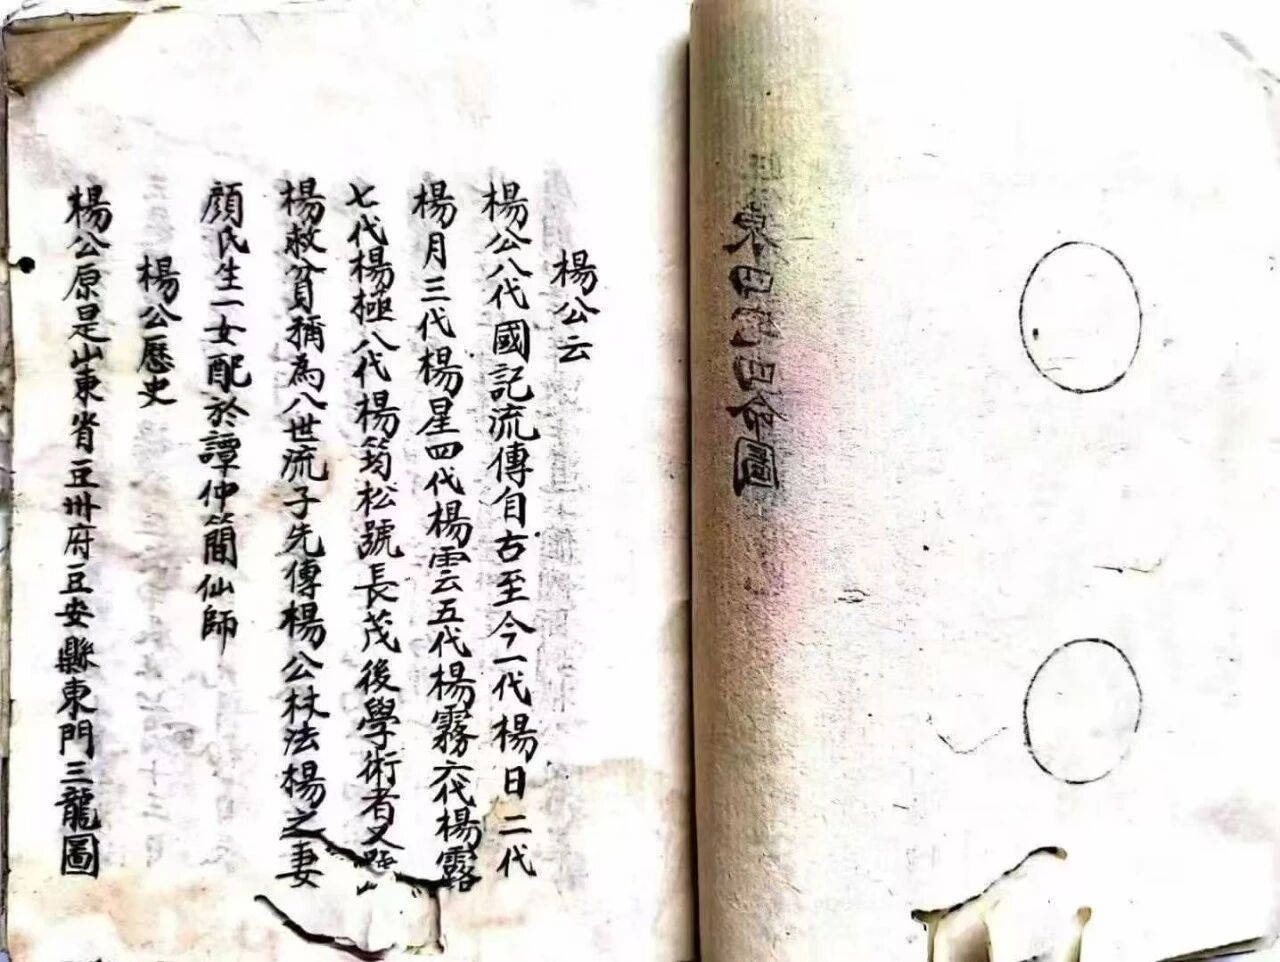 楊公云
楊公八代國記流傳自古至今一代楊日二代
楊月三代楊星四代楊雲五代楊霧六代楊露
七代楊極八代楊筠松號長茂後學術者又
楊救貧稱為八世流子先傳楊公杖法楊之妻
顏氏生一女配於譚仲簡仙師
楊公歷史
楊公原是山東省豆州府豆安縣東門三龍圖